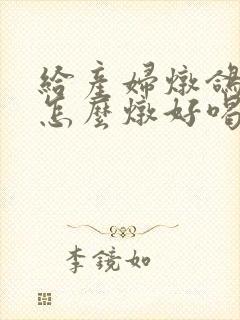 給產婦燉鴿
怎麼燉好喝
李鏡如